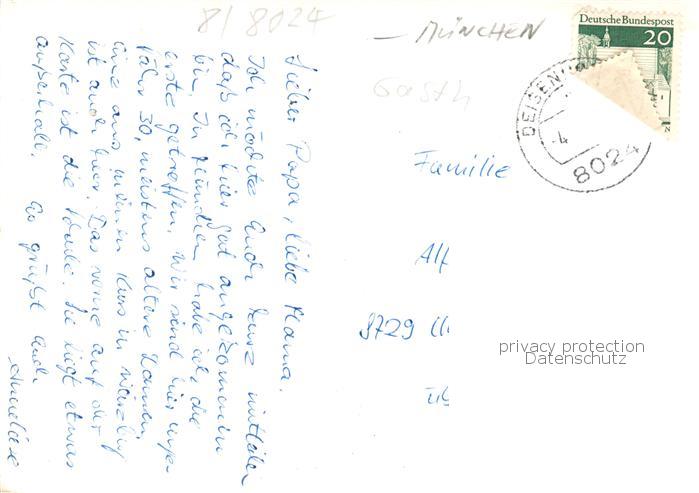 8/ 8024
- MÜNCHEN
Deutsche Bundespost
20
DEISEN
-4
8024
Lieber Papa, liebe Mama.
Ich möchte Euch kurz mitteilen
daß ich hier gut angekommen
bin. In München habe ich die
erste getroffen. Wir sind hier unge-
fähr 30, meistens ältere Damen,
eine aus meinem Kurs in Würzburg
ist auch hier. Das vorne auf der
Karte ist die Schule. Sie liegt etwas
außerhalb. Es grüßt Euch
Anneliese
Familie
Alf
8729
privacy protection
Datenschutz